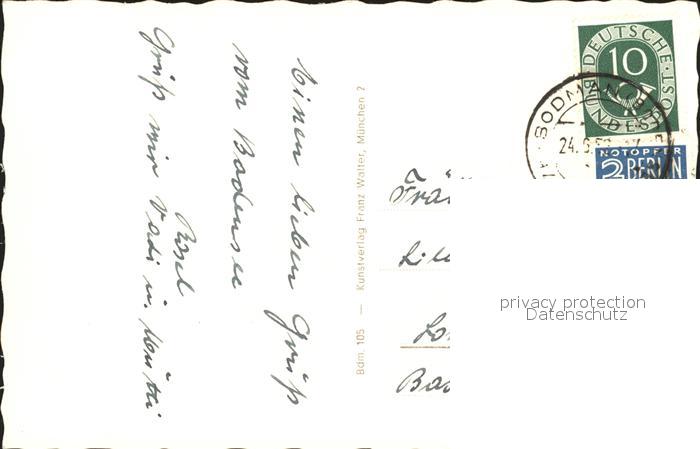 Einen lieben Gruß
vom Bodensee
Rosel
Grüß mir Vadi u. Mutti
Bdm. 105 — Kunstverlag Franz Walter, München 2
DEUTSCHE
10
BUNDESPOST
BODMAN
24.
NOTOPFER
2 BERLIN
privacy protection
Datenschutz